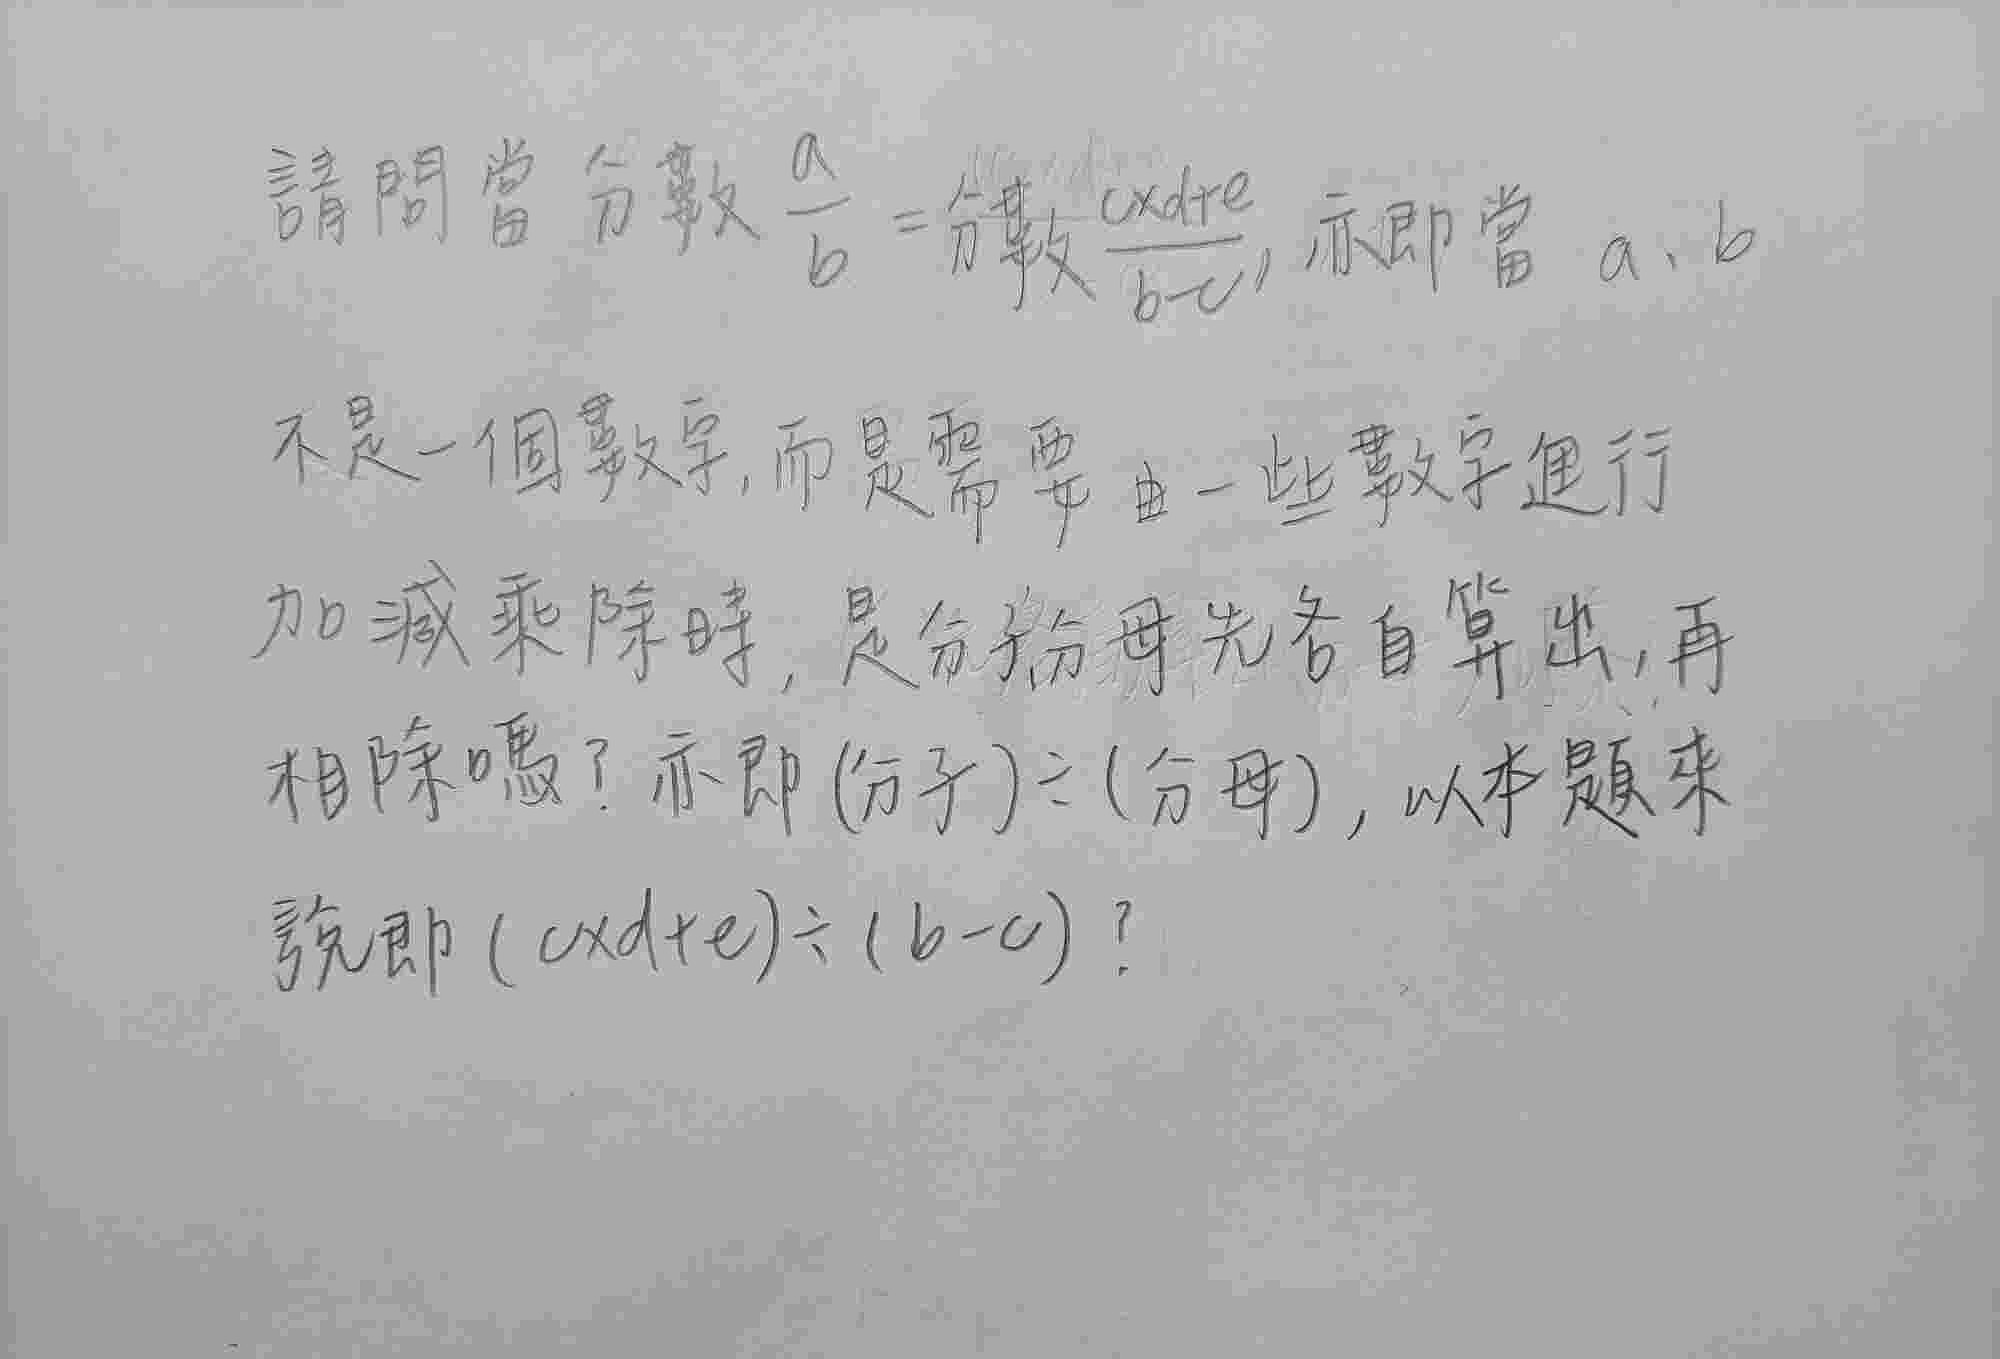 請問當分數 a/b = 分數 (c×d+e)/(b-c), 亦即當 a、b
不是一個數字,而是需要由一些數字進行
加減乘除時,是分子分母先各自算出,再
相除嗎?亦即(分子)÷(分母),以本題來
說即(c×d+e)÷(b-c)?